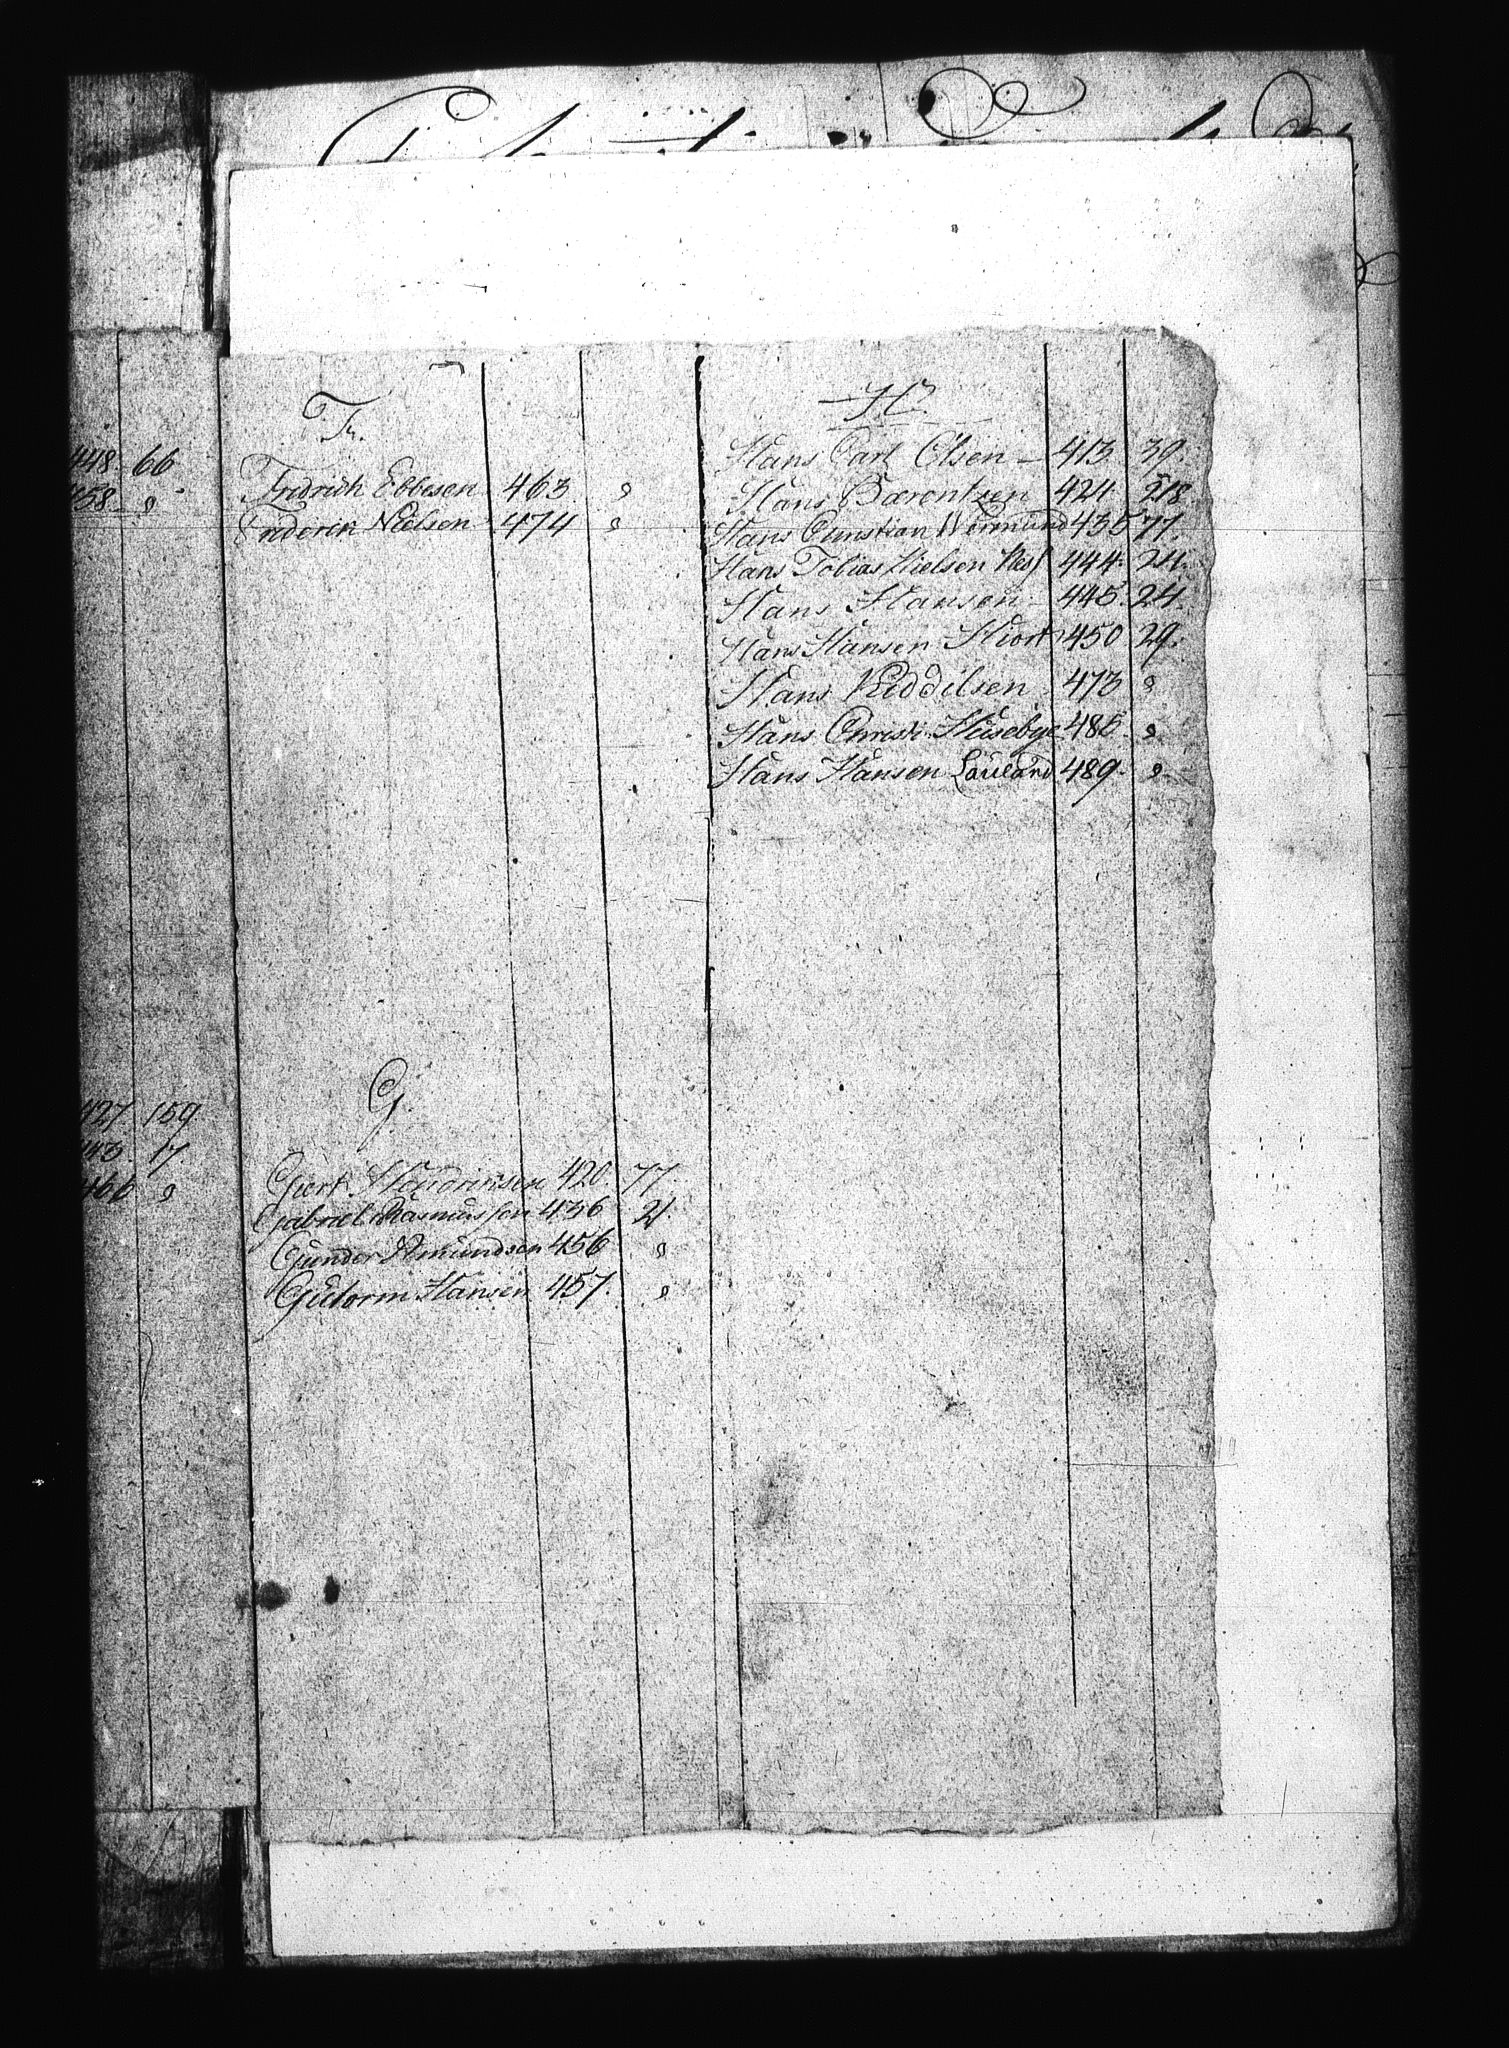 448. 66
458. "
427. 159.
443. 17.
466 "
F.
Fridrich Ebbesen 463. "
Friderich Nielsen 474 "
G.
Giert Hendrichsen 420. 77.
Gabriel Rasmussen 436 21.
Gunder Amundsen 456 "
Gutorm Hansen 457. "
H.
Hans Carl Olsen - 413. 39.
Hans Bærentzen 421. 218.
Hans Christian Wermund 435 77.
Hans Tobias Nielsen 444. 24.
Hans Hansen - 445. 24.
Hans Hansen Hiort 450 29.
Hans Kiddilsen 473 "
Hans Christi. Husebye 485. "
Hans Hansen Lauland 489. "